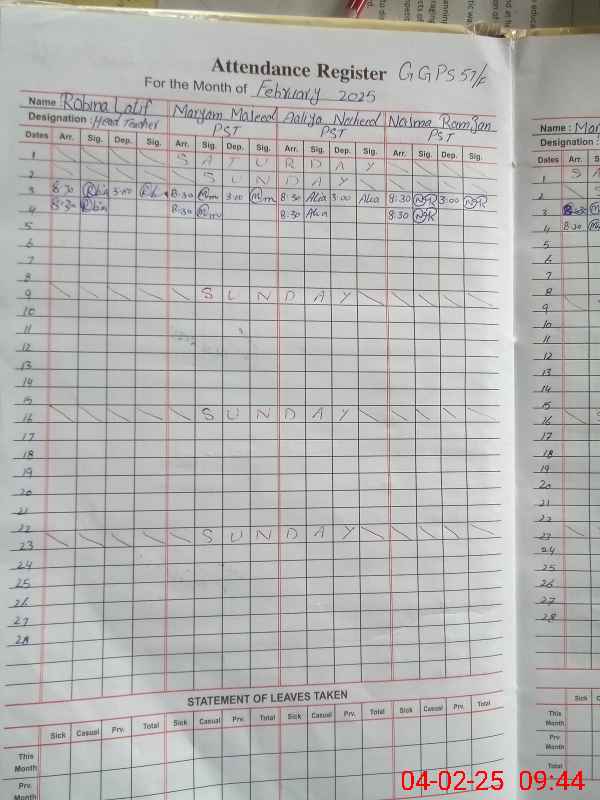 Attendance Register GGPS 57/F
For the Month of February 2025
Name : Robina Latif Maryam Majeed Aaliya Nosheed Nasma Ramzan
Designation : Head Teacher PST PST PST
Dates Arr. Sig. Dep. Sig. Arr. Sig. Dep. Sig. Arr. Sig. Dep. Sig. Arr. Sig. Dep. Sig.
1 SATURDAY
2 SUNDAY
3 8:30 3:00 8:30 3:00 8:30 Alia 3:00 Alia 8:30 NR 3:00 NR
4 8:30 8:30 8:30 Alia 8:30 NR
5
6
7
8
9 SUNDAY
10
11
12
13
14
15
16 SUNDAY
17
18
19
20
21
22
23 SUNDAY
24
25
26
27
28
STATEMENT OF LEAVES TAKEN
Sick Casual Prv. Total Sick Casual Prv. Total Sick Casual Prv. Total Sick Casual Prv. Total
This Month
Prv. Month
Name : Mar
Designation :
Dates Arr. Si
1 S
2
3 8:30
4 8:30
5
6
7
8
9
10
11
12
13
14
15
16 S
17
18
19
20
21
22
23
24
25
26
27
28
Sick C
This Month
Prv. Month
Total
04-02-25 09:44